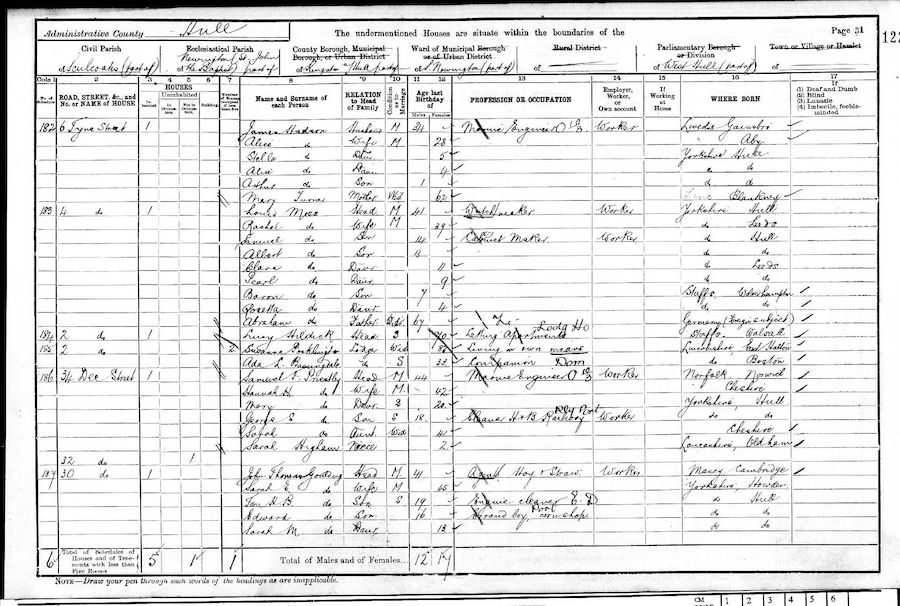 Administrative County Hull
The undermentioned Houses are situate within the boundaries of the
Page 31
122
Civil Parish
of Sculcoates (part of)
Ecclesiastical Parish
Newington St. John
of the Baptist part of
County Borough, Municipal
Borough, or Urban District
of Kingston Hull part of
Ward of Municipal Borough
or of Urban District
of Newington (part of)
Rural District
of
Parliamentary Borough
or Division
of West Hull (part of)
Town or Village or Hamlet
of
Cols. 1 2 3 4 5 6 7 8 9 10 11 12 13 14 15 16 17
No. of Schedule
ROAD, STREET, &c., and No. or NAME of HOUSE
HOUSES
Inhabited
Uninhabited
In Occupation
Not in Occupation
Building
Name and Surname of each Person
RELATION to Head of Family
Condition as to Marriage
Age last Birthday of
Males
Females
PROFESSION OR OCCUPATION
Employer, Worker, or Own account
If Working at Home
WHERE BORN
If
(1) Deaf and Dumb
(2) Blind
(3) Lunatic
(4) Imbecile, feeble-minded
182 6 Tyne Street 1 James Hudson Husband M 34 Marine Engineer Worker Lincs Gainsbro
Alice do Wife M 28 " Aby
Stella do Daur 5 Yorkshire Hull
Alice do Daur 4 do do
Arthur do Son 1 do do
Mary Turner Mother Wd 62 Linc Blankney
183 4 do 1 Louis Moss Head M 41 Worker Yorkshire Hull
Rachel do Wife M 39 do Leeds
Samuel do Son 14 Cabinet Maker Worker do Hull
Albert do Son 13 do do
Clara do Daur 11 do Leeds
Pearl do Daur 9 do do
Baron do Son 7 Staffs Wolverhampton
Rosetta do Daur 4 do do
Abraham do Father Widr 67 Germany (Foreign subject)
184 2 do 1 Lucy Hildick Head S 40 Letting Apartments Lodg Ho Staffs Walsall
185 2 do 2 Susanna Lodger Wid Living on own means Lincolnshire
Ada L. do S 33 Companion Dom do Boston
186 34 Dee Street 1 Samuel T. Priestley Head M 44 Marine Engineer Worker Norfolk Norwich
Hannah H. do Wife M 42 Cheshire
Mary do Daur S 20 Yorkshire, Hull
George E do Son S 18 Cleaner H & B Railway Worker do do
Sarah do Aunt Wd 41 Cheshire
Sarah Higham Niece 2 Lancashire, Oldham
32 do 1
187 30 do 1 John Thomas Head M 41 Agent Hay & Straw Worker Cambridge
Sarah E. do Wife M 45 Yorkshire, Howden
Tom H. B. do Son S 19 Engine cleaner do Hull
Edward do Son 16 Errand boy, Pork shop do do
Sarah M do Daur 13 do do
6 Total of Schedules of Houses and of Tenements with less than Five Rooms 5 1 1 Total of Males and of Females... 12 17
NOTE—Draw your pen through such words of the headings as are inapplicable.
CM 1 2 3 4 5 6